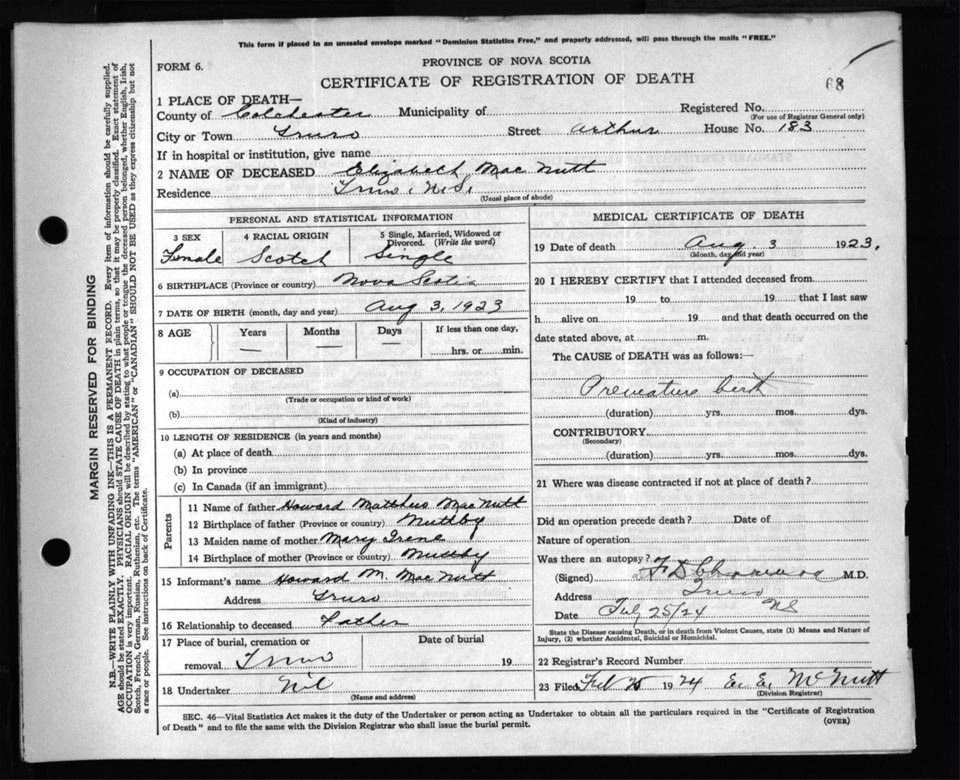 This form if placed in an unsealed envelope marked "Dominion Statistics Free," and properly addressed, will pass through the mails "FREE."
FORM 6.
PROVINCE OF NOVA SCOTIA
CERTIFICATE OF REGISTRATION OF DEATH
68
1 PLACE OF DEATH—
County of Colchester Municipality of Registered No.
(For use of Registrar General only)
City or Town Truro Street Arthur House No. 183
If in hospital or institution, give name
2 NAME OF DECEASED Elizabeth Mac Nutt
Residence Truro, N.S.
(Usual place of abode)
PERSONAL AND STATISTICAL INFORMATION
3 SEX 4 RACIAL ORIGIN 5 Single, Married, Widowed or Divorced. (Write the word)
Female Scotch Single
6 BIRTHPLACE (Province or country) Nova Scotia
7 DATE OF BIRTH (month, day and year) Aug 3, 1923
8 AGE Years Months Days If less than one day,
— — — hrs. or min.
9 OCCUPATION OF DECEASED
(a)
(Trade or occupation or kind of work)
(b)
(Kind of industry)
10 LENGTH OF RESIDENCE (in years and months)
(a) At place of death
(b) In province
(c) In Canada (if an immigrant)
Parents
11 Name of father Howard Matthus Mac Nutt
12 Birthplace of father (Province or country) Nuttby
13 Maiden name of mother Mary Irene
14 Birthplace of mother (Province or country) Nuttby
15 Informant's name Howard M. Mac Nutt
Address Truro
16 Relationship to deceased Father
17 Place of burial, cremation or Date of burial
removal Truro 19
18 Undertaker Nil
(Name and address)
MEDICAL CERTIFICATE OF DEATH
19 Date of death Aug. 3 1923.
(Month, day and year)
20 I HEREBY CERTIFY that I attended deceased from
19 to 19 that I last saw
h alive on 19 and that death occurred on the
date stated above, at m.
The CAUSE of DEATH was as follows:—
Premature birth
(duration) yrs. mos. dys.
CONTRIBUTORY
(Secondary)
(duration) yrs. mos. dys.
21 Where was disease contracted if not at place of death?
Did an operation precede death? Date of
Nature of operation
Was there an autopsy?
(Signed) M.D.
Address Truro NS
Date Feb 25/24
State the Disease causing Death, or in death from Violent Causes, state (1) Means and Nature of
Injury, (2) whether Accidental, Suicidal or Homicidal.
22 Registrar's Record Number
23 Filed Feb 25 1924 E. E. McNutt
(Division Registrar)
SEC. 46—Vital Statistics Act makes it the duty of the Undertaker or person acting as Undertaker to obtain all the particulars required in the "Certificate of Registration
of Death" and to file the same with the Division Registrar who shall issue the burial permit.
(OVER)
MARGIN RESERVED FOR BINDING
N.B.—WRITE PLAINLY WITH UNFADING INK—THIS IS A PERMANENT RECORD. Every item of information should be carefully supplied.
AGE should be stated EXACTLY. PHYSICIANS should STATE CAUSE OF DEATH in plain terms, so that it may be properly classified. Exact statement of
OCCUPATION is very important. RACIAL ORIGIN will be described by stating to what people or tongue the deceased person belonged, whether English, Irish,
Scotch, French, German, Russian, Ruthenian, etc. The terms "AMERICAN" or "CANADIAN" SHOULD NOT BE USED as they express citizenship but not
a race or people. See instructions on back of Certificate.